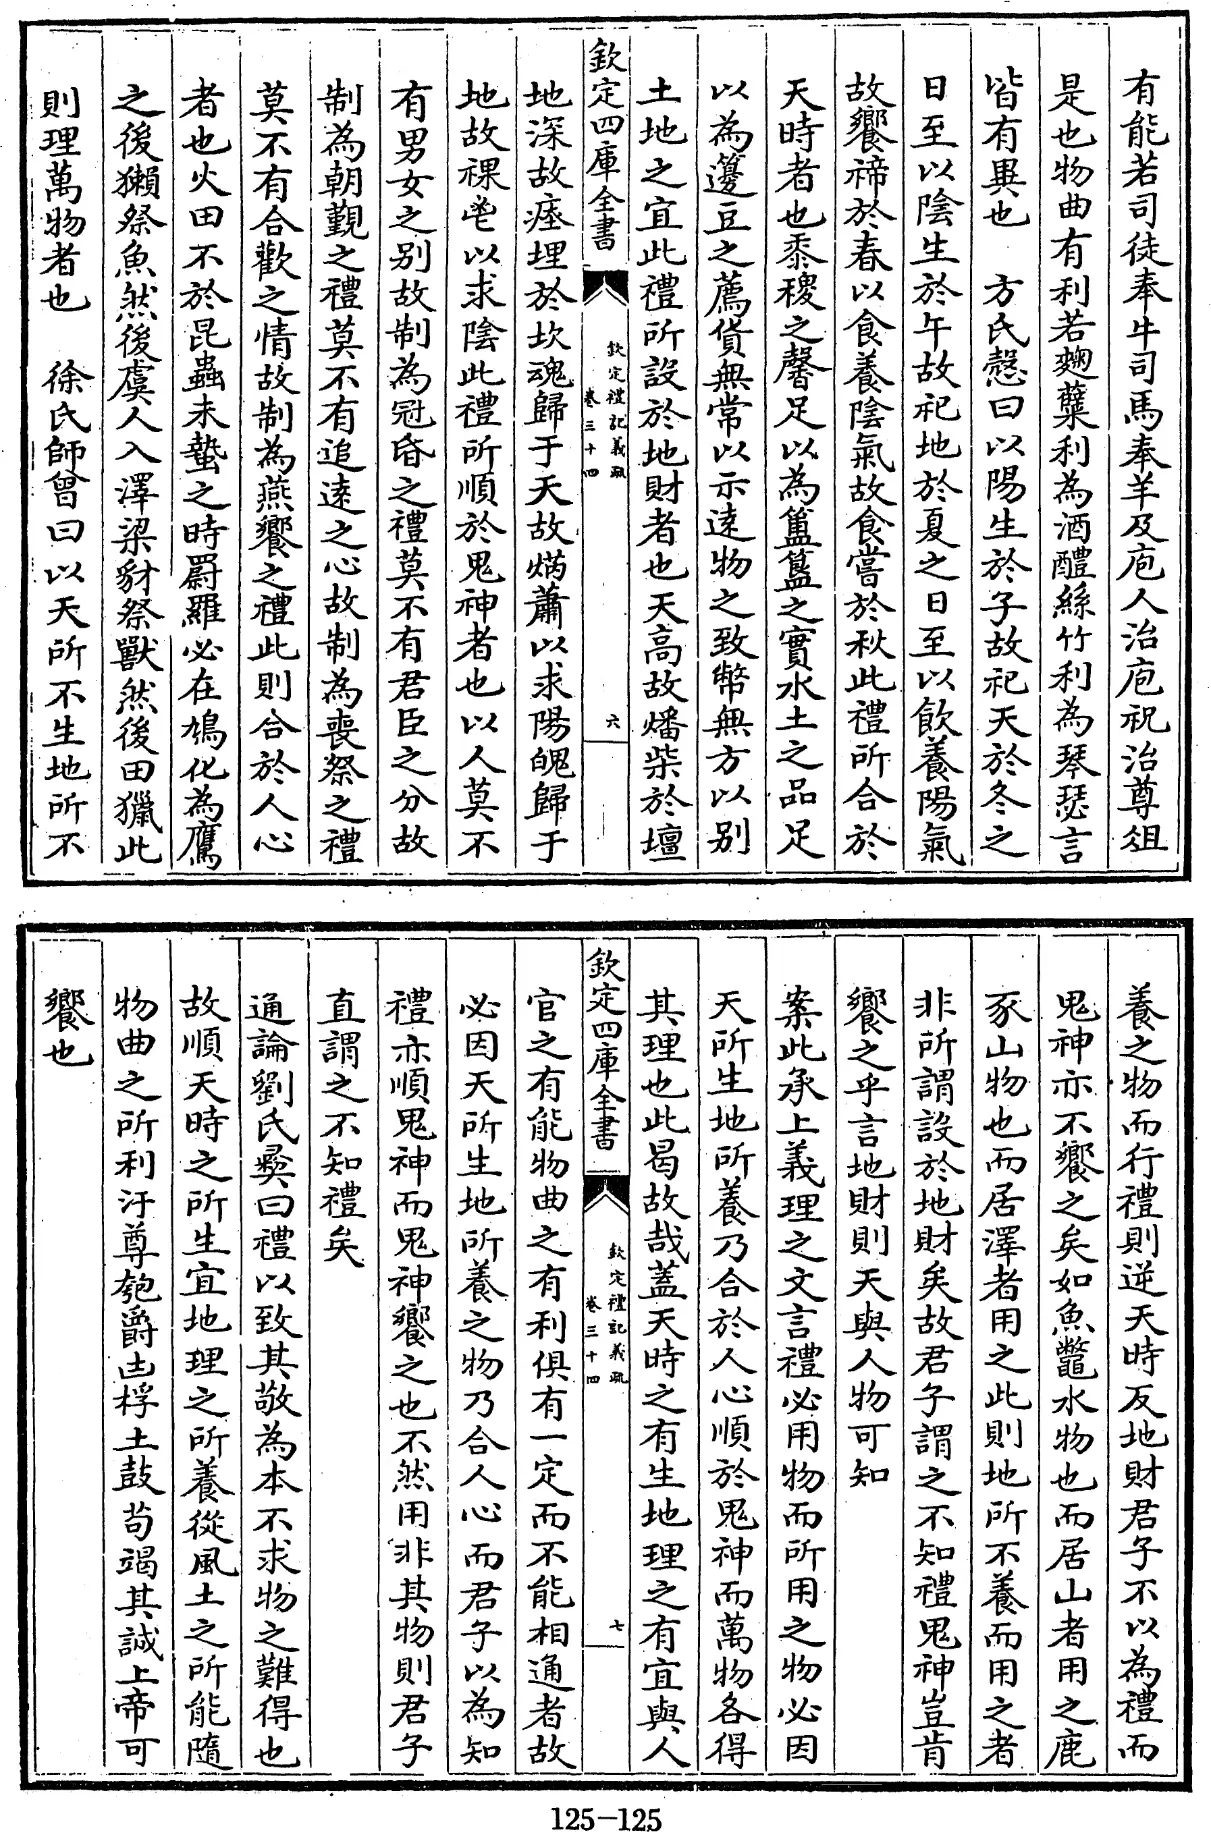 有能若司徒奉牛司馬奉羊及庖人治庖祝治尊俎
是也物曲有利若麴糵利為酒醴絲竹利為琴瑟言
皆有異也　方氏慤曰以陽生於子故祀天於冬之
日至以陰生於午故祀地於夏之日至以飲養陽氣
故饗禘於春以食養陰氣故食嘗於秋此禮所合於
天時者也黍稷之馨足以為簠簋之實水土之品足
以為籩豆之薦貨無常以示遠物之致幣無方以别
土地之宜此禮所設於地財者也天高故燔柴於壇
欽定四庫全書
欽定禮記義疏
卷三十四
六
地深故瘞埋於坎魂歸于天故焫蕭以求陽魄歸于
地故祼鬯以求陰此禮所順於鬼神者也以人莫不
有男女之别故制為冠昏之禮莫不有君臣之分故
制為朝覲之禮莫不有追遠之心故制為喪祭之禮
莫不有合歡之情故制為燕饗之禮此則合於人心
者也火田不於昆蟲未蟄之時罻羅必在鳩化為鷹
之後獺祭魚然後虞人入澤梁豺祭獸然後田獵此
則理萬物者也　徐氏師曾曰以天所不生地所不
養之物而行禮則逆天時反地財君子不以為禮而
鬼神亦不饗之矣如魚鼈水物也而居山者用之鹿
豕山物也而居澤者用之此則地所不養而用之者
非所謂設於地財矣故君子謂之不知禮鬼神豈肯
饗之乎言地財則天與人物可知
案此承上義理之文言禮必用物而所用之物必因
天所生地所養乃合於人心順於鬼神而萬物各得
其理也此曷故哉蓋天時之有生地理之有宜與人
欽定四庫全書
欽定禮記義疏
卷三十四
七
官之有能物曲之有利俱有一定而不能相通者故
必因天所生地所養之物乃合人心而君子以為知
禮亦順鬼神而鬼神饗之也不然用非其物則君子
直謂之不知禮矣
通論劉氏彝曰禮以致其敬為本不求物之難得也
故順天時之所生宜地理之所養從風土之所能隨
物曲之所利汙尊匏爵凷桴土鼓苟竭其誠上帝可
饗也
125-125